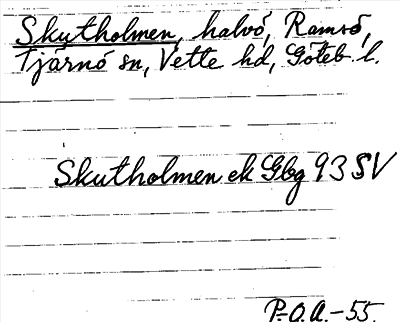 Skutholmen, halvö, Ramsö,
Tjärnö sn, Vette hd, Göteb. l.
Skutholmen ek Gbg 93 SV
P.O.A.-55.